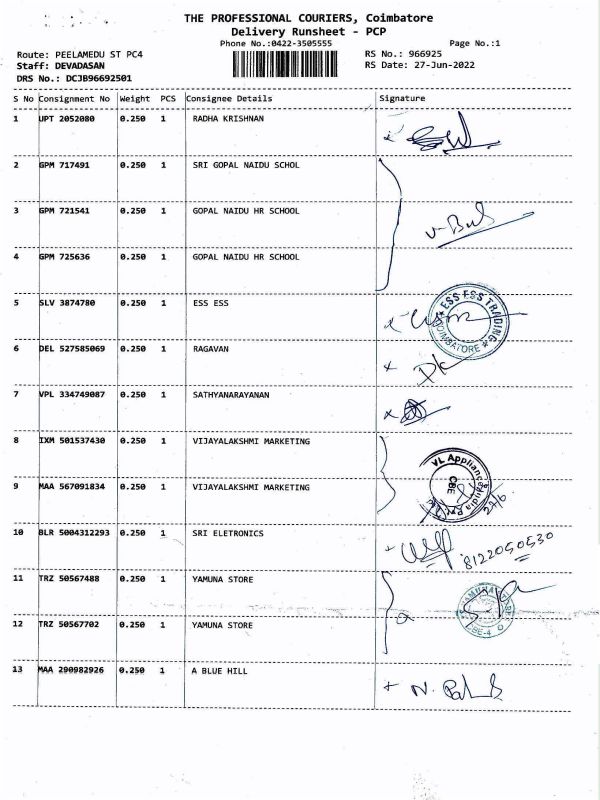 THE PROFESSIONAL COURIERS, Coimbatore
Delivery Runsheet - PCP
Phone No.:0422-3505555 Page No.:1
Route: PEELAMEDU ST PC4 RS No.: 966925
Staff: DEVADASAN RS Date: 27-Jun-2022
DRS No.: DCJB96692501
S No Consignment No Weight PCS Consignee Details Signature
1 UPT 2052080 0.250 1 RADHA KRISHNAN
2 GPM 717491 0.250 1 SRI GOPAL NAIDU SCHOL
3 GPM 721541 0.250 1 GOPAL NAIDU HR SCHOOL
4 GPM 725636 0.250 1 GOPAL NAIDU HR SCHOOL
5 SLV 3874780 0.250 1 ESS ESS
ESS ESS TRADING
COIMBATORE
6 DEL 527585069 0.250 1 RAGAVAN
7 VPL 334749087 0.250 1 SATHYANARAYANAN
8 IXM 501537430 0.250 1 VIJAYALAKSHMI MARKETING
VL Appliances
CBE
9 MAA 567091834 0.250 1 VIJAYALAKSHMI MARKETING
27/6
10 BLR 5004312293 0.250 1 SRI ELETRONICS
8122050530
11 TRZ 50567488 0.250 1 YAMUNA STORE
YAMUNA
12 TRZ 50567702 0.250 1 YAMUNA STORE
CBE-4
13 MAA 290982926 0.250 1 A BLUE HILL